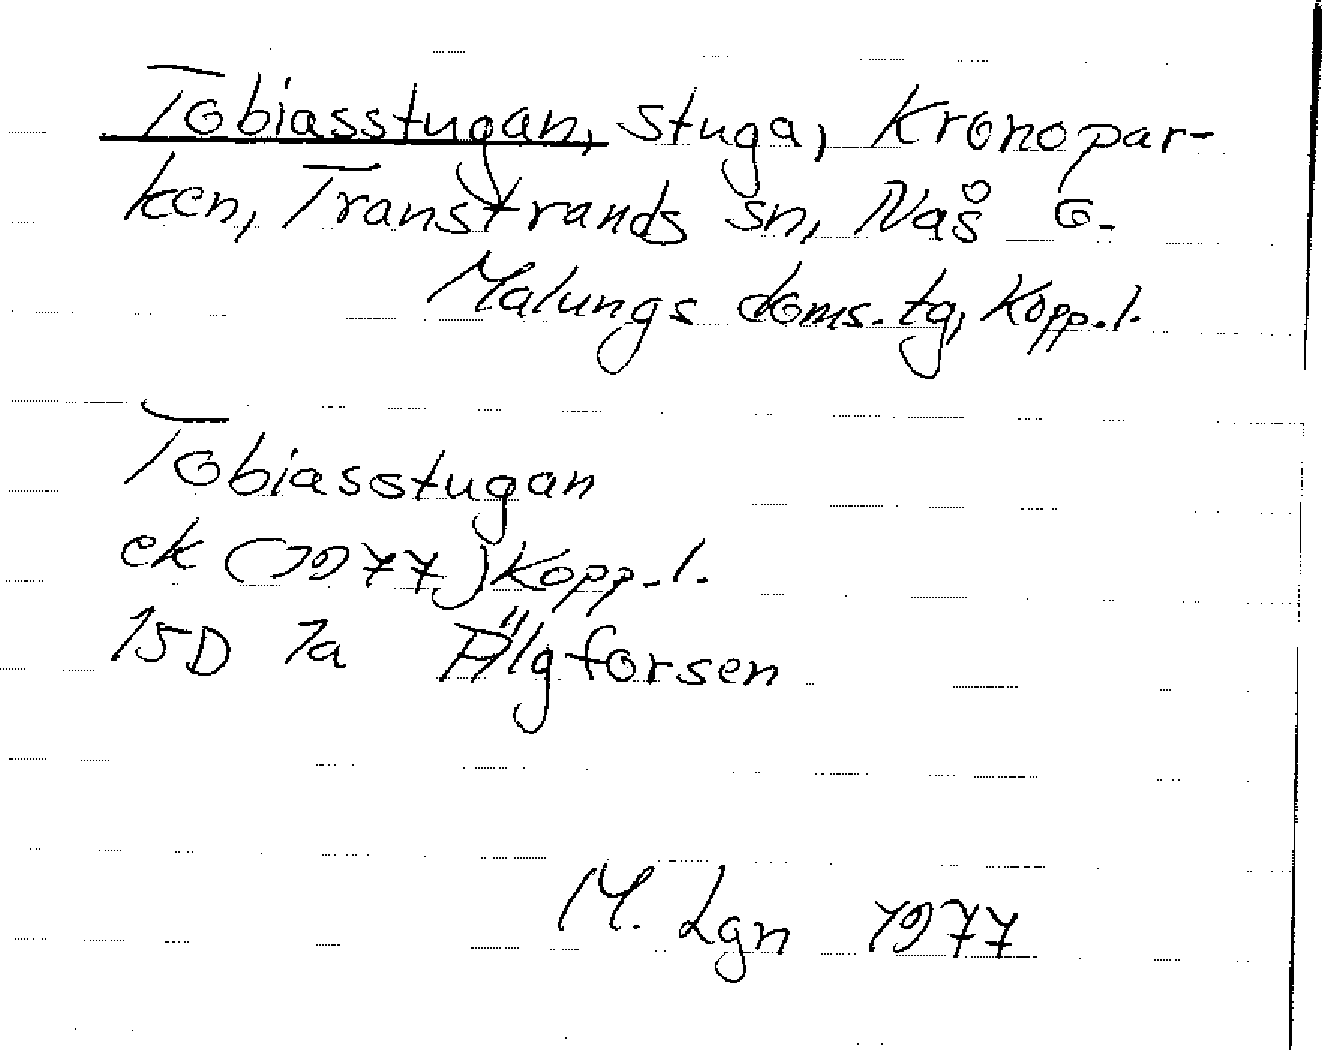 Tobiasstugan, stuga, Kronopar-
ken, Transtrands sn, Nås o.
Malungs doms. tg, Kopp. l.
Tobiasstugan
ek (1977) Kopp. l.
15D 7a Älgforsen
M. Lgn 1977